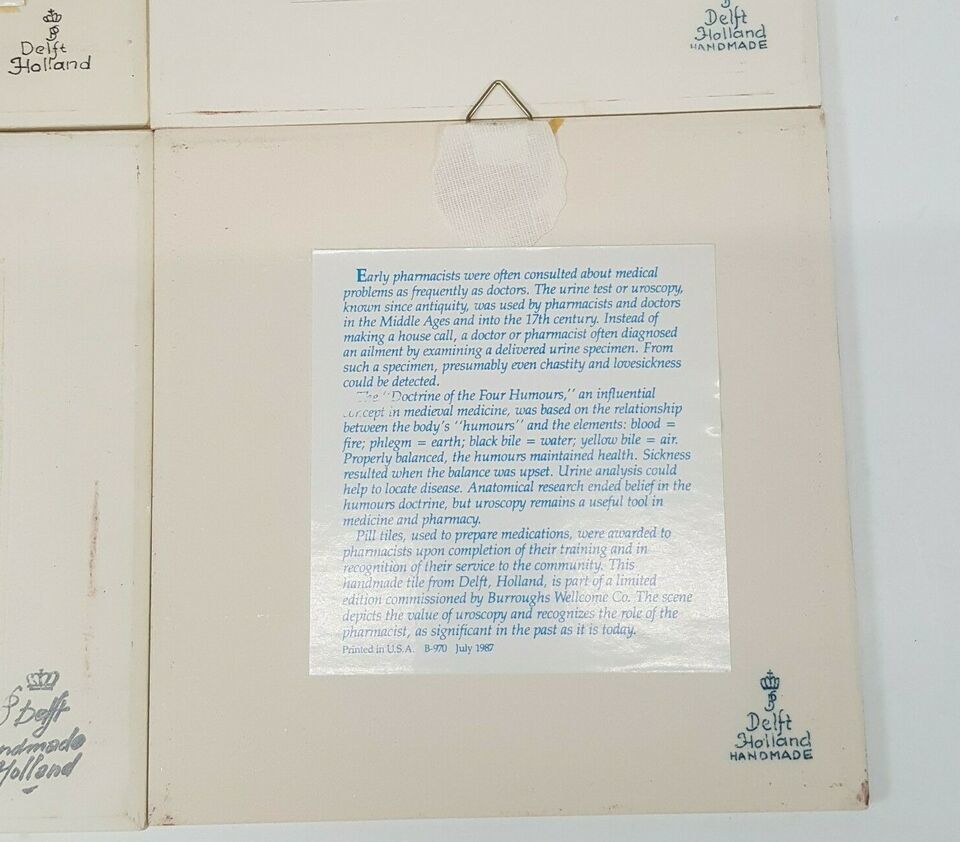 Delft
Holland
Delft
Holland
HANDMADE
Early pharmacists were often consulted about medical
problems as frequently as doctors. The urine test or uroscopy,
known since antiquity, was used by pharmacists and doctors
in the Middle Ages and into the 17th century. Instead of
making a house call, a doctor or pharmacist often diagnosed
an ailment by examining a delivered urine specimen. From
such a specimen, presumably even chastity and lovesickness
could be detected.
The "Doctrine of the Four Humours," an influential
concept in medieval medicine, was based on the relationship
between the body's "humours" and the elements: blood =
fire; phlegm = earth; black bile = water; yellow bile = air.
Properly balanced, the humours maintained health. Sickness
resulted when the balance was upset. Urine analysis could
help to locate disease. Anatomical research ended belief in the
humours doctrine, but uroscopy remains a useful tool in
medicine and pharmacy.
Pill tiles, used to prepare medications, were awarded to
pharmacists upon completion of their training and in
recognition of their service to the community. This
handmade tile from Delft, Holland, is part of a limited
edition commissioned by Burroughs Wellcome Co. The scene
depicts the value of uroscopy and recognizes the role of the
pharmacist, as significant in the past as it is today.
Printed in U.S.A. B-970 July 1987
Delft
ndmade
Holland
Delft
Holland
HANDMADE